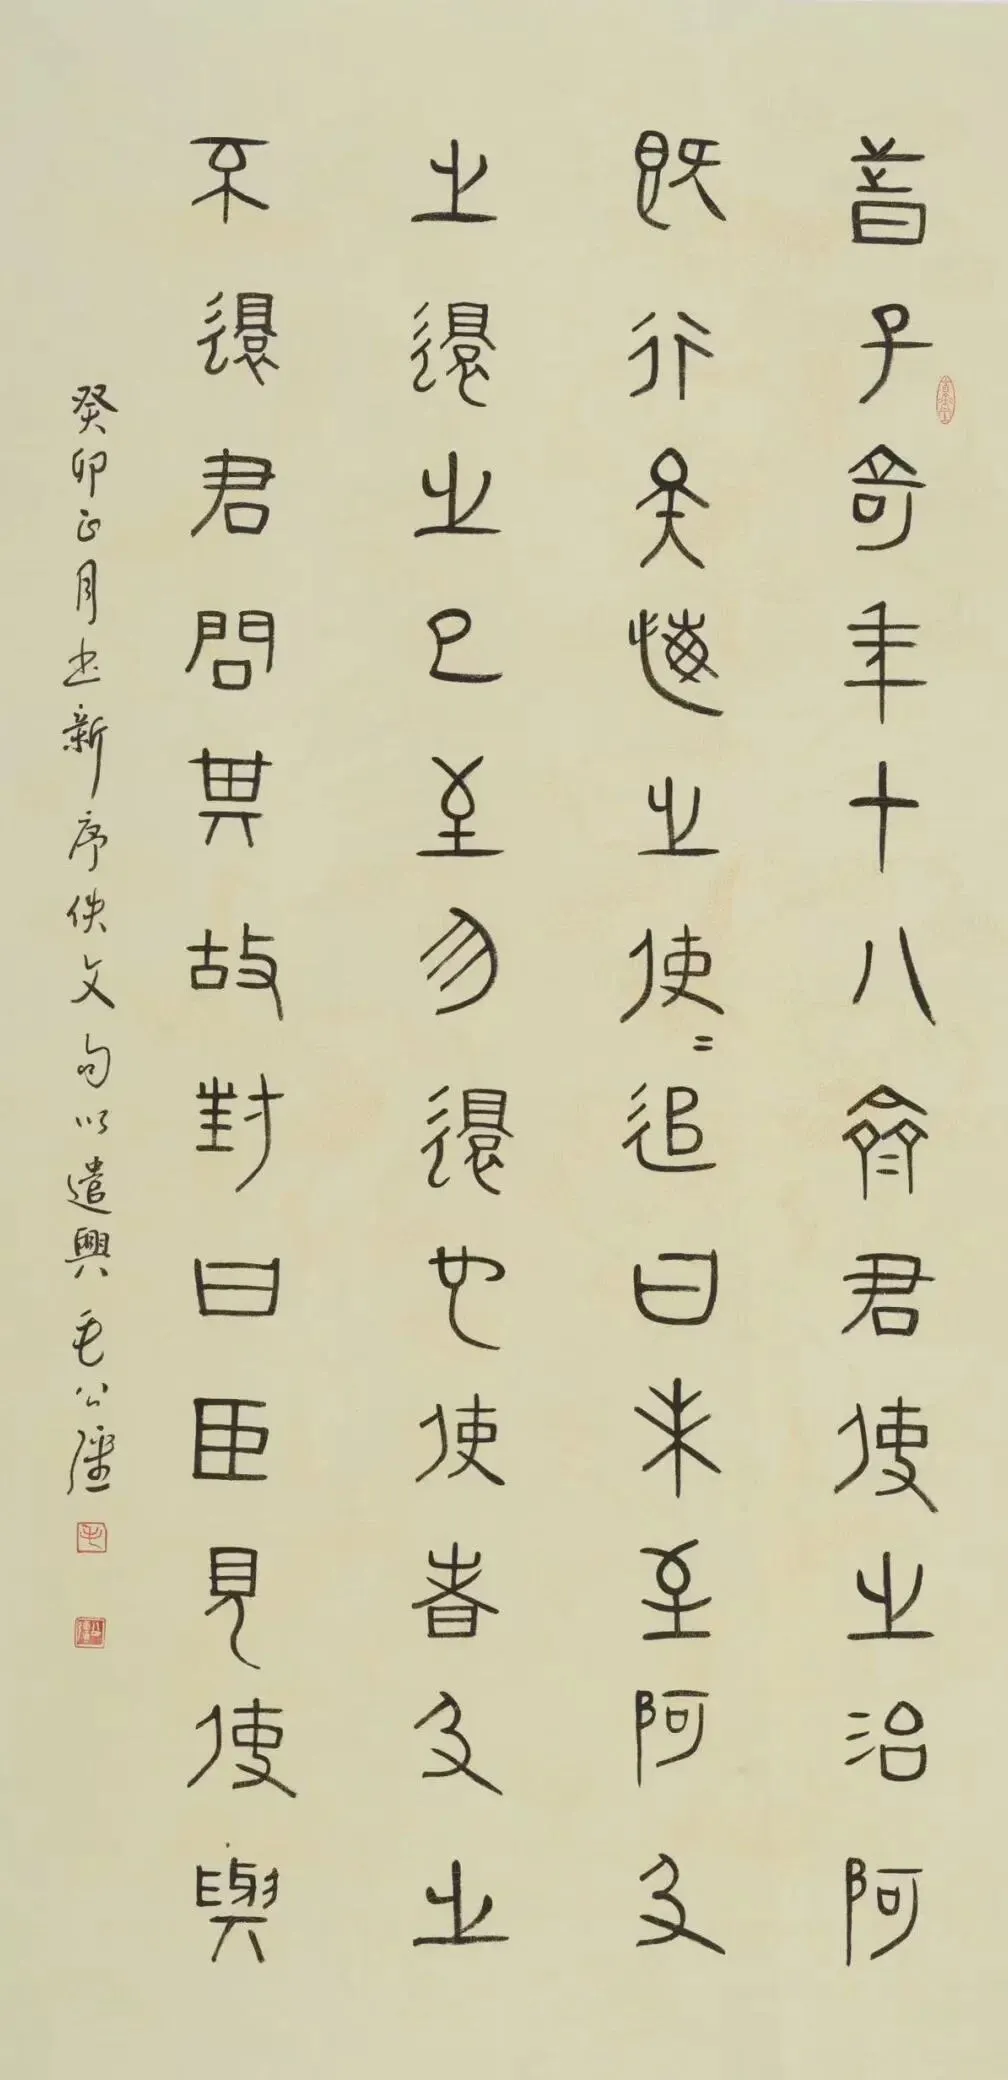 昔子奇年十八齊君使之治阿
既行矣悔之使〻追曰未至阿及
之還之已至勿還也使者及之
不還君問其故對曰臣見使與
癸卯正月書新序佚文句以遣興 毛公彊
毛